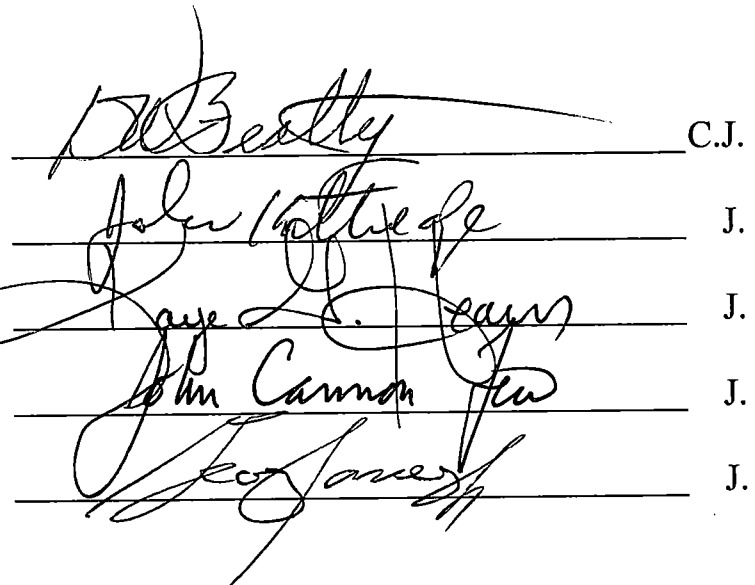 DW Beatty C.J.
John Kittredge J.
Kaye G. Hearn J.
John Cannon Few J.
Geo James Jr J.